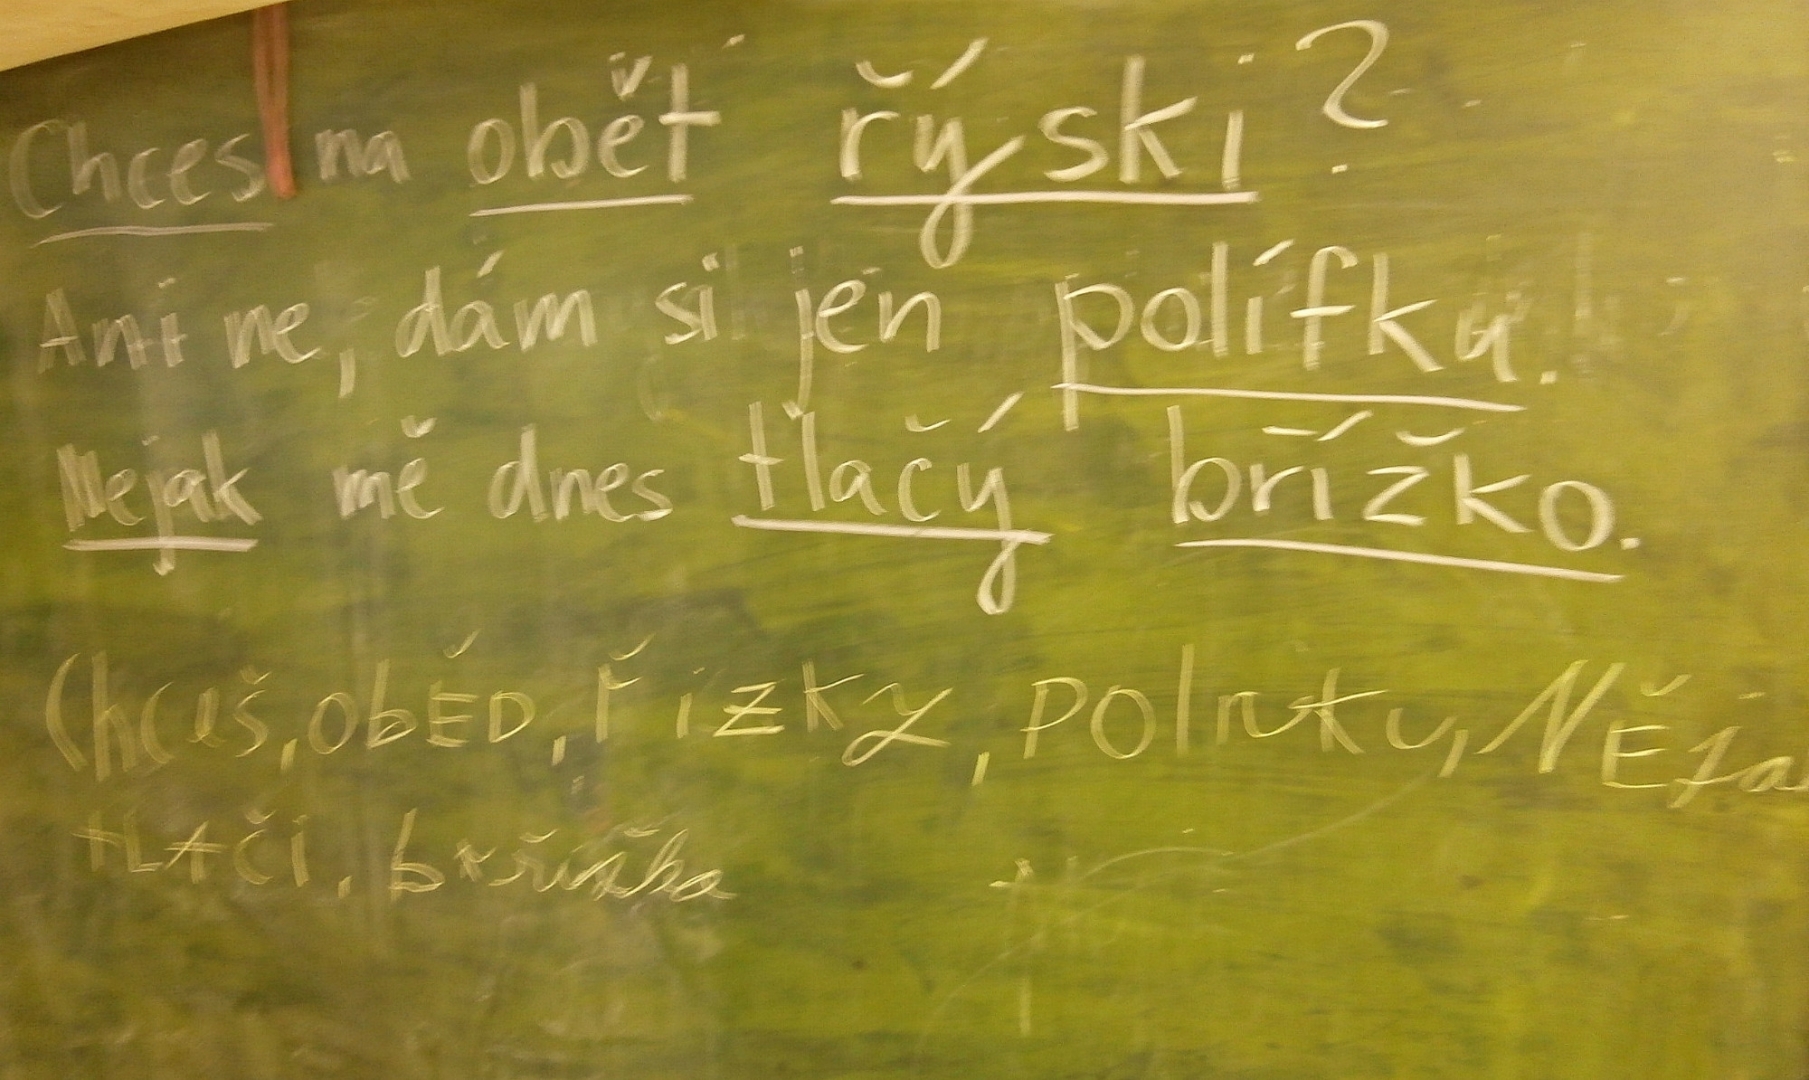 Chces na obět řýski?
Ani ne, dám si jen polífku.
Nejak mě dnes tlačý břížko.
Chceš, obĚD, řizky, polívku, NĚja
tLAči, bříško